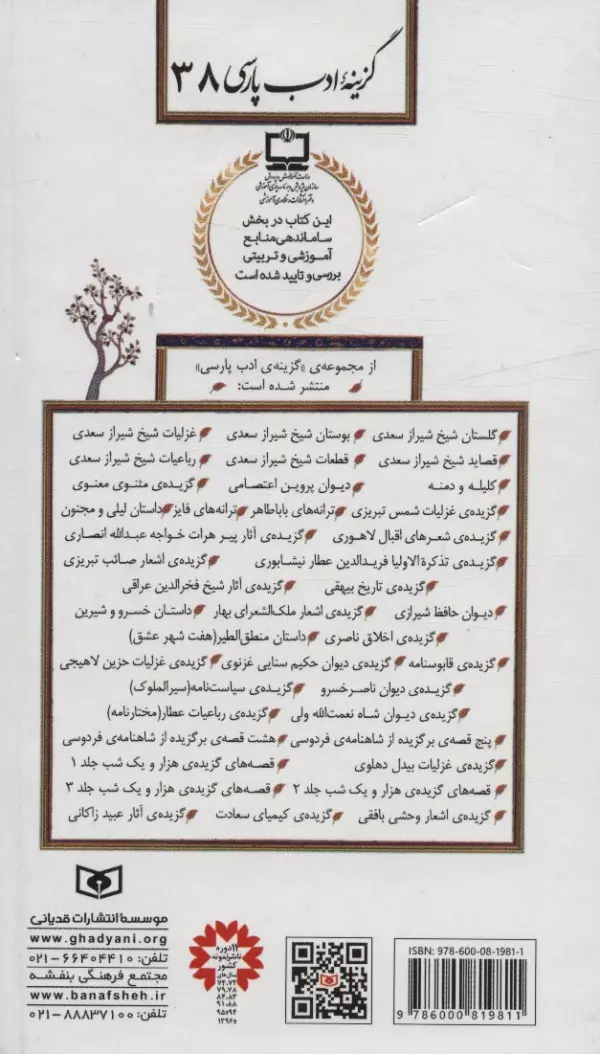 گزینهٔ ادب پارسی ۳۸
وزارت آموزش و پرورش
سازمان پژوهش و برنامه‌ریزی آموزشی
دفتر انتشارات و فناوری آموزشی
این کتاب در بخش
ساماندهی منابع
آموزشی و تربیتی
بررسی و تایید شده است
از مجموعه‌ی «گزینه‌ی ادب پارسی»
منتشر شده است:
گلستان شیخ شیراز سعدی بوستان شیخ شیراز سعدی غزلیات شیخ شیراز سعدی
قصاید شیخ شیراز سعدی قطعات شیخ شیراز سعدی رباعیات شیخ شیراز سعدی
کلیله و دمنه دیوان پروین اعتصامی گزیده‌ی مثنوی معنوی
گزیده‌ی غزلیات شمس تبریزی ترانه‌های باباطاهر ترانه‌های فایز داستان لیلی و مجنون
گزیده‌ی شعرهای اقبال لاهوری گزیده‌ی آثار پیر هرات خواجه عبدالله انصاری
گزیده‌ی تذکرة الاولیا فریدالدین عطار نیشابوری گزیده‌ی اشعار صائب تبریزی
گزیده‌ی تاریخ بیهقی گزیده‌ی آثار شیخ فخرالدین عراقی
دیوان حافظ شیرازی گزیده‌ی اشعار ملک‌الشعرای بهار داستان خسرو و شیرین
گزیده‌ی اخلاق ناصری داستان منطق‌الطیر(هفت شهر عشق)
گزیده‌ی قابوسنامه گزیده‌ی دیوان حکیم سنایی غزنوی گزیده‌ی غزلیات حزین لاهیجی
گزیده‌ی دیوان ناصرخسرو گزیده‌ی سیاست‌نامه(سیرالملوک)
گزیده‌ی دیوان شاه نعمت‌الله ولی گزیده‌ی رباعیات عطار(مختارنامه)
پنج قصه‌ی برگزیده از شاهنامه‌ی فردوسی هشت قصه‌ی برگزیده از شاهنامه‌ی فردوسی
گزیده‌ی غزلیات بیدل دهلوی قصه‌های گزیده‌ی هزار و یک شب جلد ۱
قصه‌های گزیده‌ی هزار و یک شب جلد ۲ قصه‌های گزیده‌ی هزار و یک شب جلد ۳
گزیده‌ی اشعار وحشی بافقی گزیده‌ی کیمیای سعادت گزیده‌ی آثار عبید زاکانی
موسسهٔ انتشارات قدیانی
www.ghadyani.org
تلفن: ۶۶۴۰۴۴۱۰-۰۲۱
مجتمع فرهنگی بنفشه
www.banafsheh.ir
تلفن: ۸۸۸۳۷۱۰۰-۰۲۱
۱۱ دوره
ناشر نمونه
کشور
سال‌های
۷۴،۷۲
۷۹،۷۸
۸۴،۸۲
۹۱،۸۸
۹۵،۹۴
۱۳۹۶
ISBN: 978-600-08-1981-1
9 786000 819811